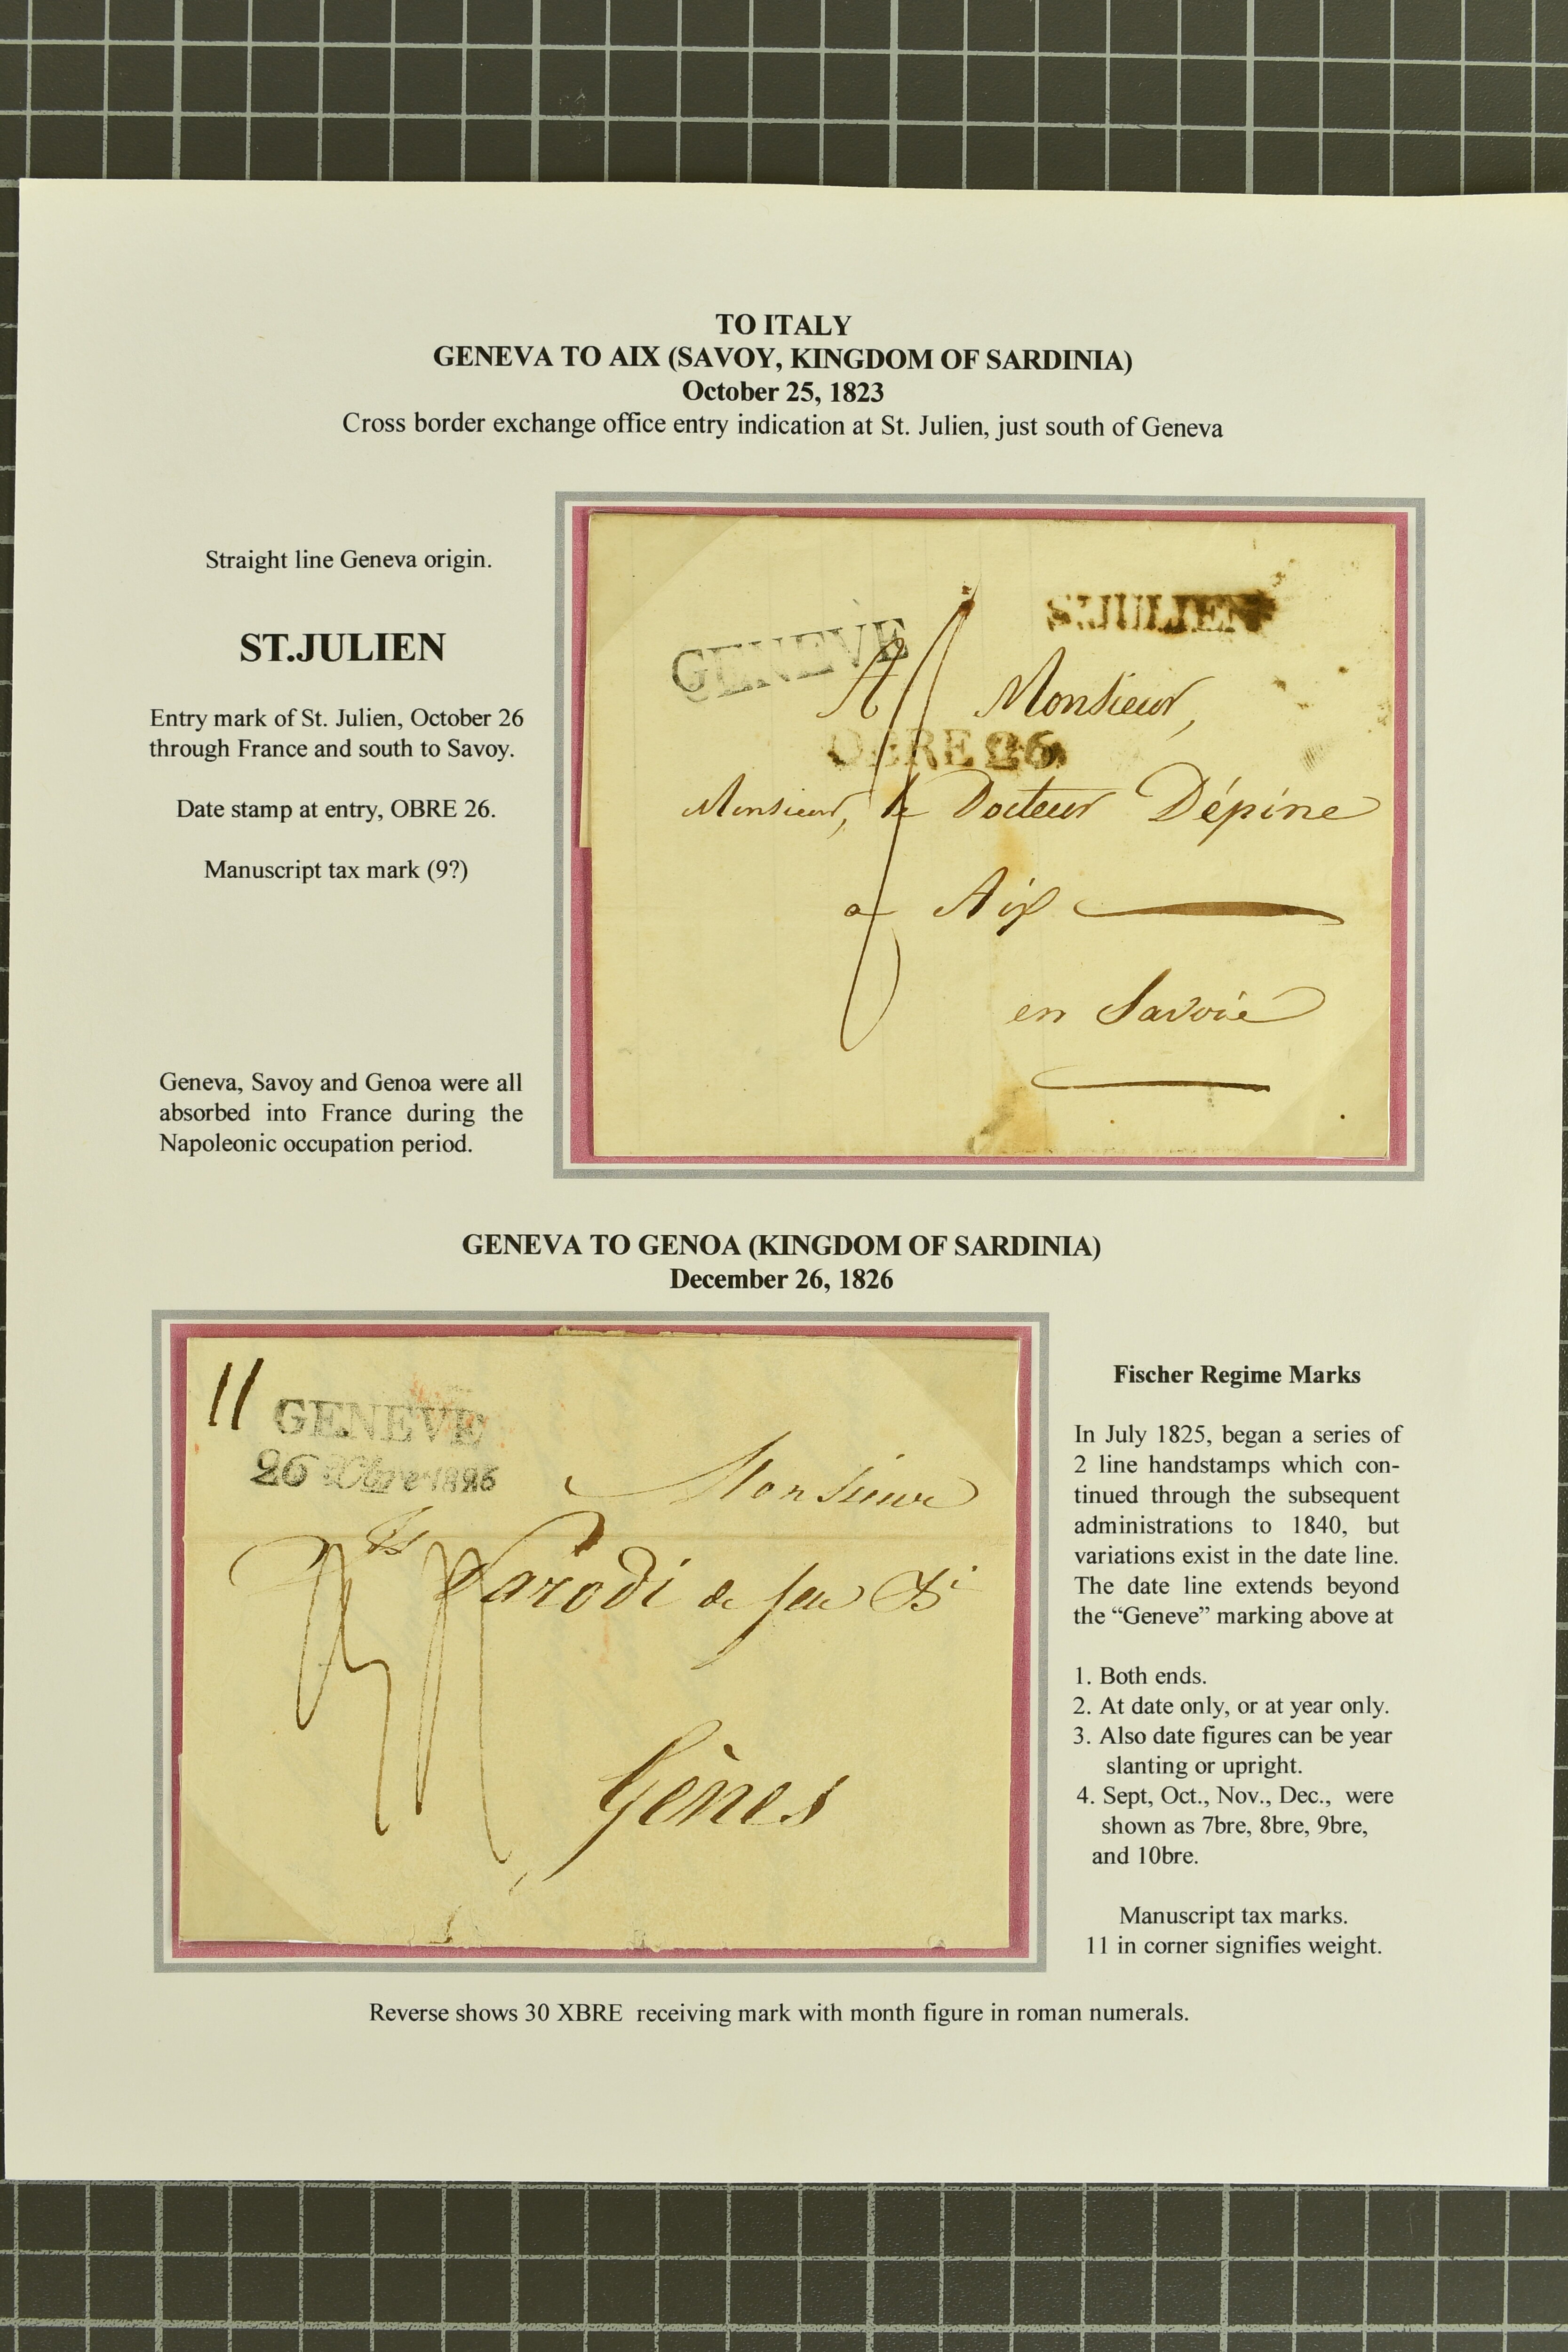 TO ITALY
GENEVA TO AIX (SAVOY, KINGDOM OF SARDINIA)
October 25, 1823
Cross border exchange office entry indication at St. Julien, just south of Geneva
Straight line Geneva origin.
ST.JULIEN
Entry mark of St. Julien, October 26
through France and south to Savoy.
Date stamp at entry, OBRE 26.
Manuscript tax mark (9?)
Geneva, Savoy and Genoa were all
absorbed into France during the
Napoleonic occupation period.
GENEVE
ST.JULIEN
A Monsieur,
OBRE 26
Monsieur, le Docteur Dépine
a Aix
en Savoie
GENEVA TO GENOA (KINGDOM OF SARDINIA)
December 26, 1826
11
GENEVE
26 Xbre 1826
Monsieur
Parodi de feu
Gênes
Fischer Regime Marks
In July 1825, began a series of
2 line handstamps which con-
tinued through the subsequent
administrations to 1840, but
variations exist in the date line.
The date line extends beyond
the “Geneve” marking above at
1. Both ends.
2. At date only, or at year only.
3. Also date figures can be year
slanting or upright.
4. Sept, Oct., Nov., Dec., were
shown as 7bre, 8bre, 9bre,
and 10bre.
Manuscript tax marks.
11 in corner signifies weight.
Reverse shows 30 XBRE receiving mark with month figure in roman numerals.